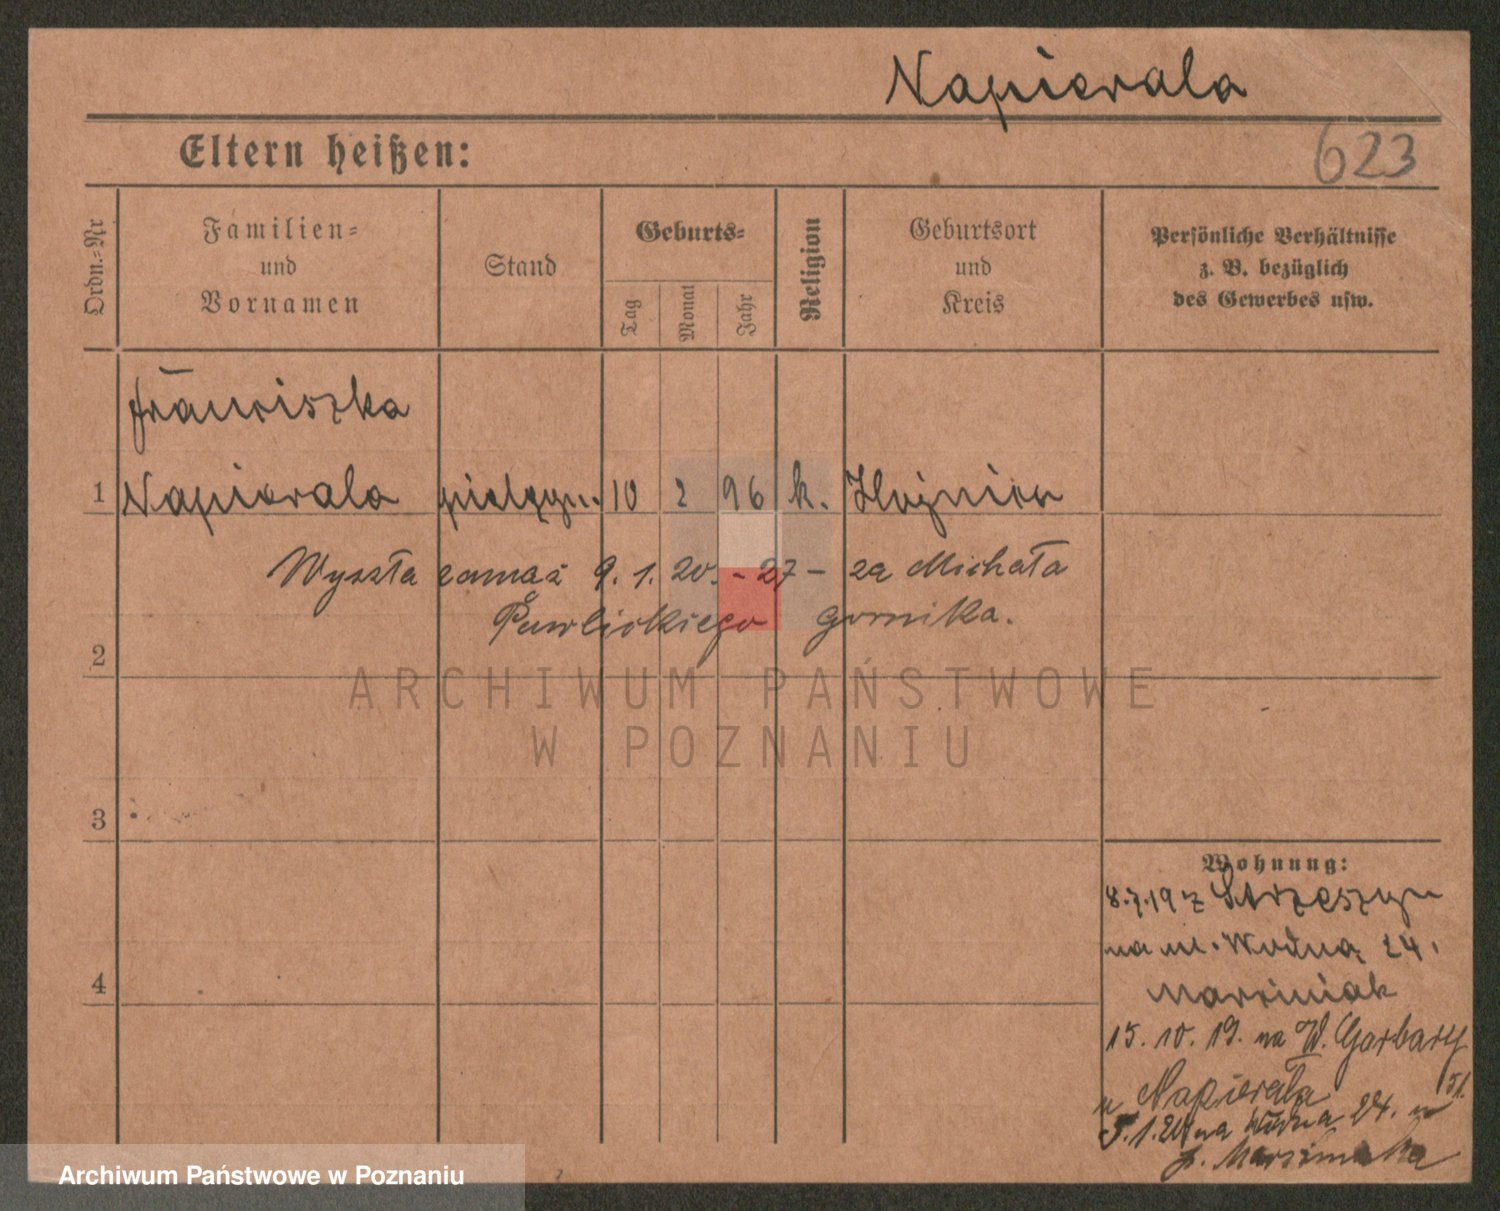 Napierala
Eltern heißen:
623
Ordn.-Nr
Familien-
und
Vornamen
Stand
Geburts-
Tag
Monat
Jahr
Religion
Geburtsort
und
Kreis
Persönliche Verhältnisse
z. B. bezüglich
des Gewerbes usw.
Franciszka
1 Napierala pielęgn. 10 2 96 k.
Wyszła zamąż 9. 1. 20. - 27 - za Michała
Pawlickiego gornika.
2
ARCHIWUM PAŃSTWOWE
W POZNANIU
3
Wohnung:
8.7.19 z Strzeszyn
na ul. Wodną 24.
4
Marciniak
15. 10. 19. na W. Garbary
51.
u Napierała
5.1.20 na Wodna 24. u
Marciniaka
Archiwum Państwowe w Poznaniu